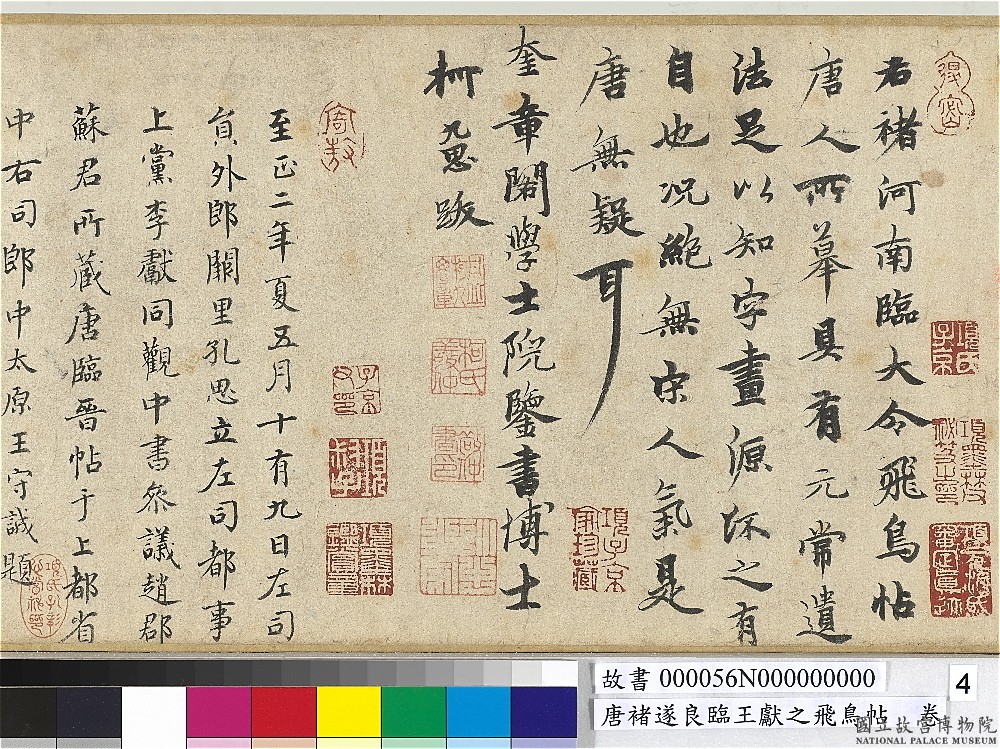 右褚河南臨大令飛鳥帖
唐人所摹具有元常遺
法足以知字畫源流之有
自也况絕無宋人氣是
唐無疑耳
奎章閣學士院鑒書博士
柯九思跋
至正二年夏五月十有九日左司
員外郎闕里孔思立左司都事
上黨李獻同觀中書參議趙郡
蘇君所藏唐臨晉帖于上都省
中右司郎中太原王守誠題
項子京
家珍藏
故書 000056N000000000
4
唐褚遂良臨王獻之飛鳥帖 卷
國立故宮博物院
NATIONAL PALACE MUSEUM